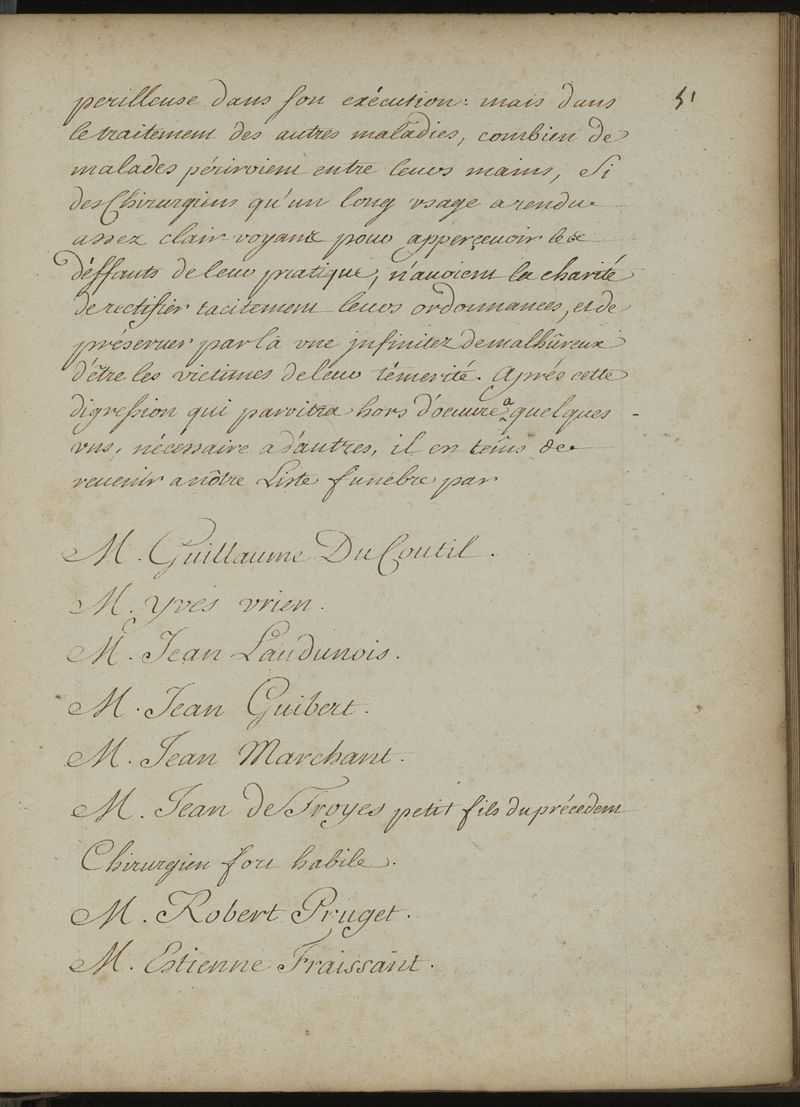 51
perilleuse dans son exécution: mais dans
le traitement des autres maladies, combien de
malades périroient entre leurs mains, Si
des Chirurgiens qu'un long vsage a rendu
assez clair voyant pour apperçeuoir les
déffauts de leur pratique, n'auoient la charité
de rectifier tacitement leurs ordonnances, et de
préseruer par là vne jnfinitez de malhûreux
d'être les victimes de leur témerité. Aprés cette
digression qui paroitra hors d'oeuure a quelques
vns, nécessaire a d'autres, il en tems de
reuenir a nôtre Liste funebre par
M. Guillaume Du Coutil.
M. Yves vrien.
M. Jean Laudunois.
M. Jean Guibert.
M. Jean Marchant.
M. Jean de Troyes petit fils du précedent
Chirurgien fort habile.
M. Robert Pruget.
M. Estienne Fraissant.